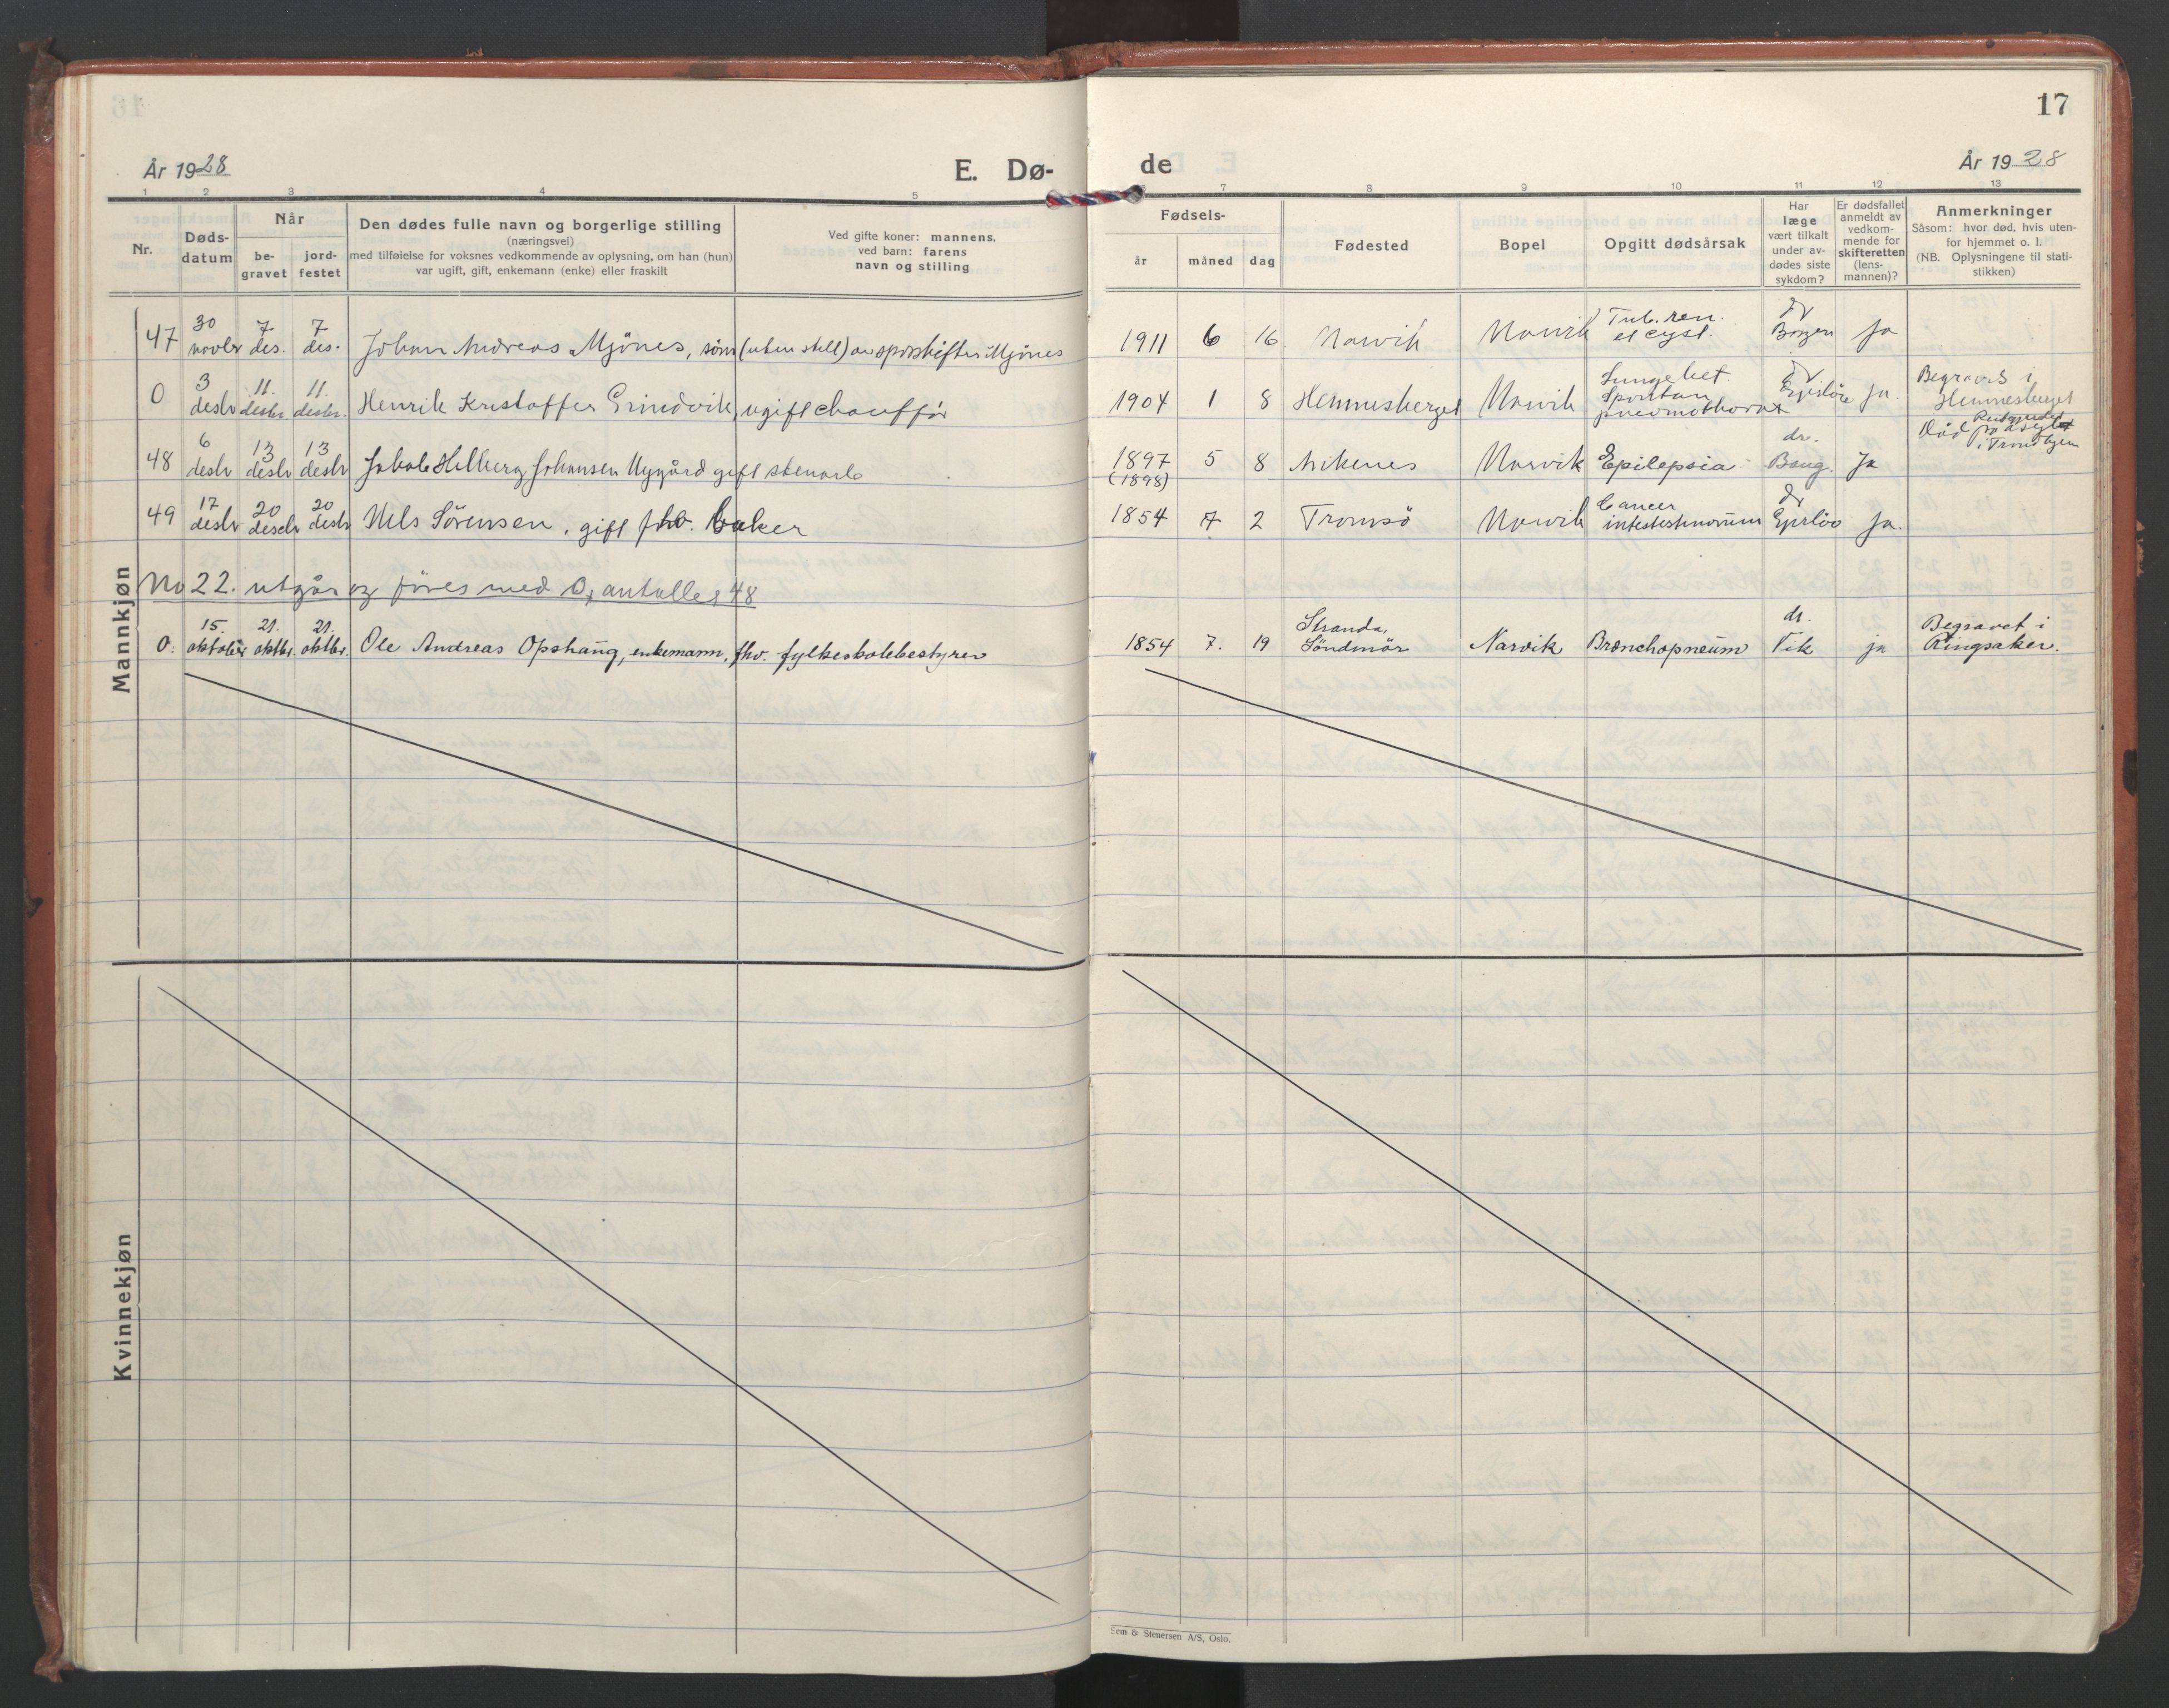 17
År 1928
E. Dø-
de
År 1928
1 2 3 4 5 7 8 9 10 11 12 13
Nr.
Døds-
datum
Når
be-
gravet
jord-
festet
Den dødes fulle navn og borgerlige stilling
(næringsvei)
med tilføielse for voksnes vedkommende av oplysning, om han (hun)
var ugift, gift, enkemann (enke) eller fraskilt
Ved gifte koner: mannens,
ved barn: farens
navn og stilling
Fødsels-
år måned dag
Fødested
Bopel
Opgitt dødsårsak
Har
læge
vært tilkalt
under av-
dødes siste
sykdom?
Er dødsfallet
anmeldt av
vedkom-
mende for
skifteretten
(lens-
mannen)?
Anmerkninger
Såsom: hvor død, hvis uten-
for hjemmet o. l.
(NB. Oplysningene til stati-
stikken)
Mannkjøn
47
30
novbr
7
des.
7
des.
Johan Andreas Mjönes, sönn (uten still) av sporskifter Mjönes
1911 6 16 Narvik Narvik
Tub. ren.
et cyst.
Dr
Borgen
Ja
0
3
desbr
11.
desbr.
11.
desbr.
Henrik Kristoffer Grindvik, ugift chaufför
1904 1 8 Hemnesberget Narvik
Lungebet.
Spontan
pneumothorax
Dr
Ja.
Begravet i
Hemnesberget
Död på
i Trondhjem
48
6
desbr
13
desbr
13
desbr
Jakob Helberg Johansen Nygård gift stenarb
1897
(1898)
5 8 Ankenes Narvik Epilepsia
dr.
Baug.
Ja
49
17
desbr
20
desbr
20
desbr
Nels Sörensen, gift fhv. baker
1854 7 2 Tromsö Narvik
Cancer
intestestinorum
Dr
Ja.
No 22. utgår og föres med 0, antallet 48
0.
15.
oktober
21.
oktbr.
21.
oktbr.
Ole Andreas Opshaug, enkemann, fhv. fylkesskolebestyrer
1854 7. 19
Stranda,
Söndmör
Narvik Bronchopneum
dr.
Vik
ja
Begravet i
Ringsaker.
Kvinnekjøn
Sem & Stenersen A/S, Oslo.